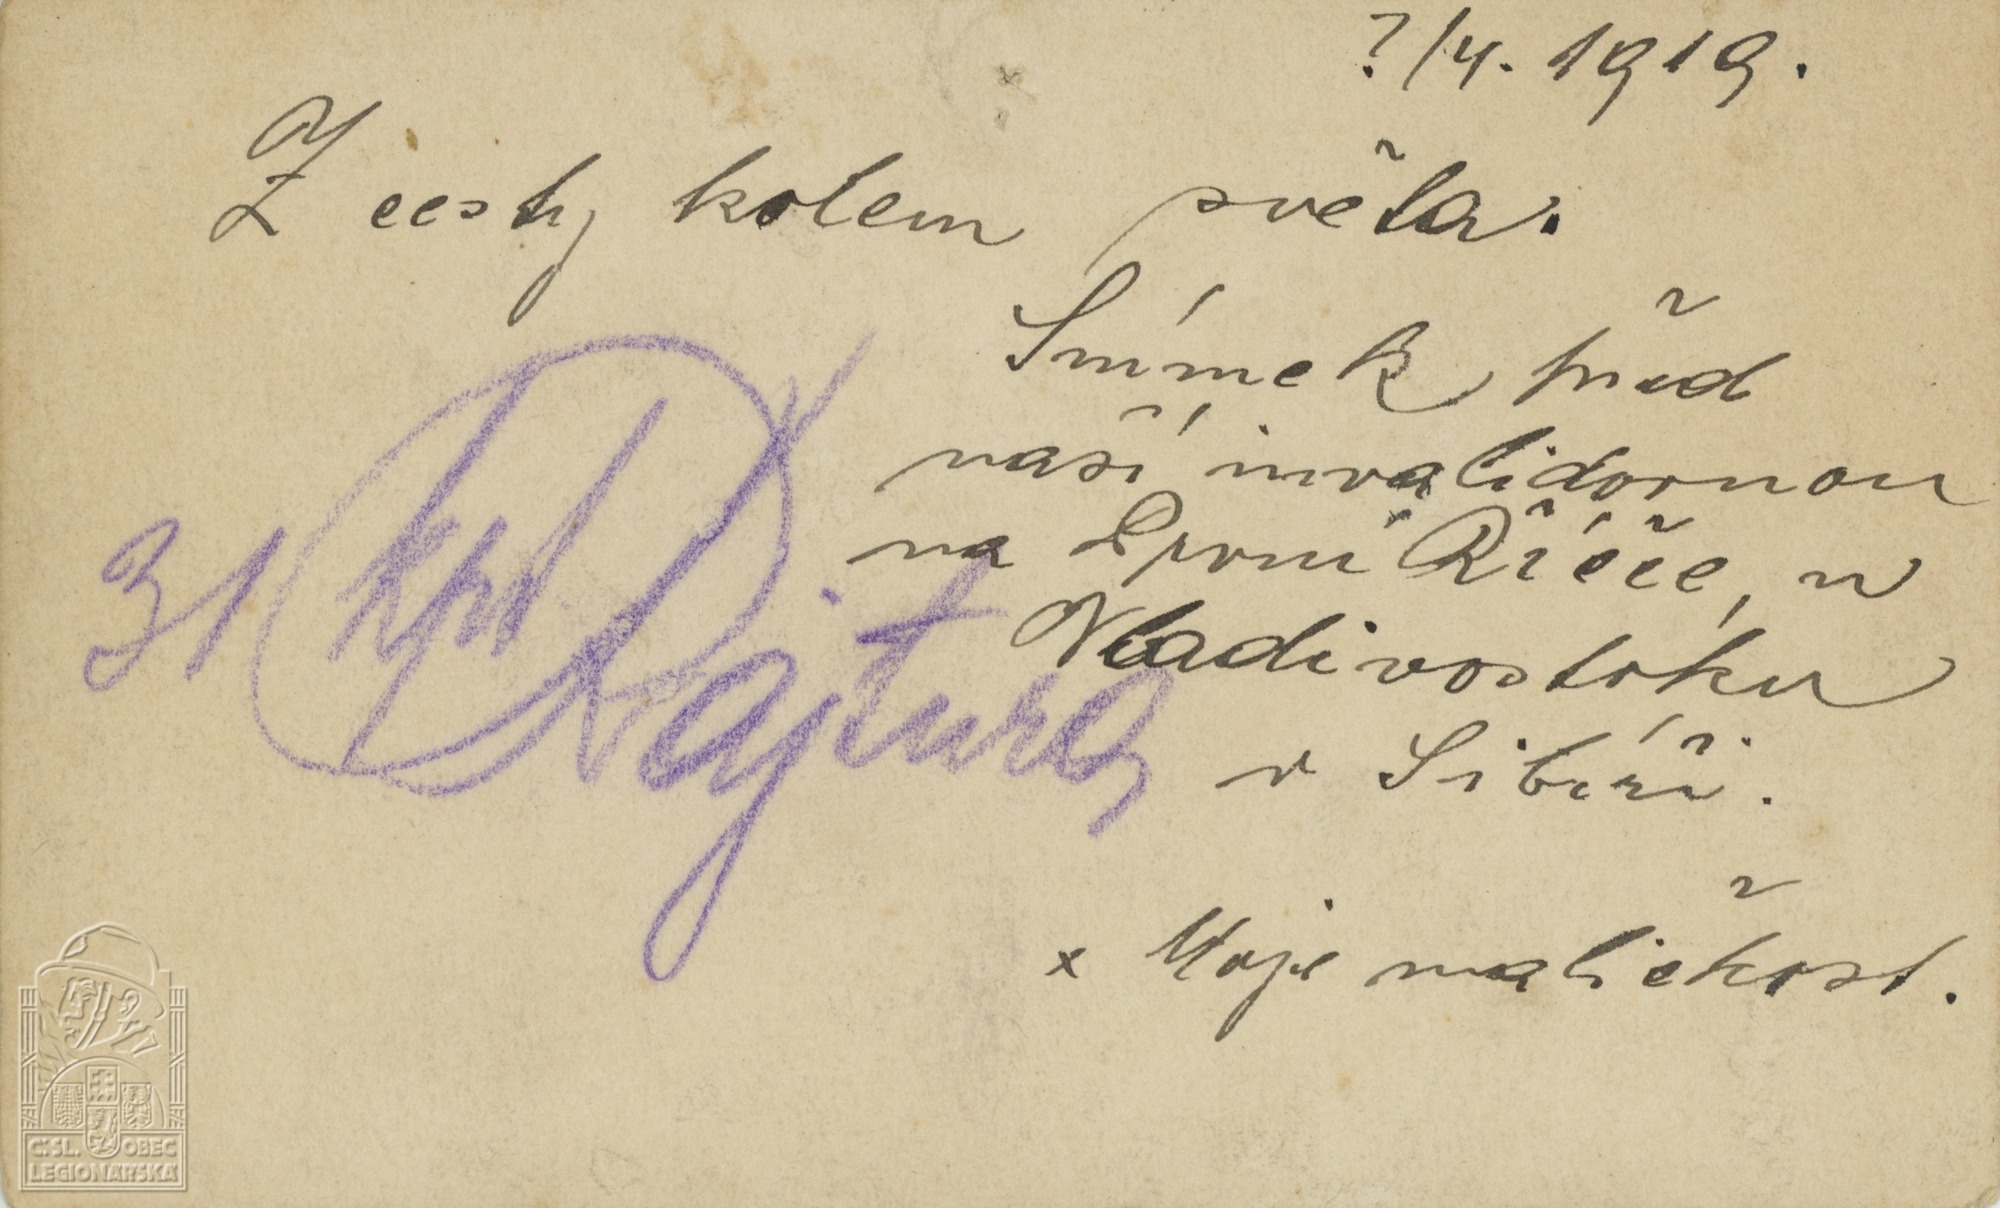 ?/4. 1919.
Z cesty kolem světa.
Snímek před
naší invalidovnou
na První Říčce, u
Vladivostoku
v Sibíři.
x Moje maličkost.
31 kpt Rajtura
ČSL. OBEC
LEGIONÁŘSKÁ